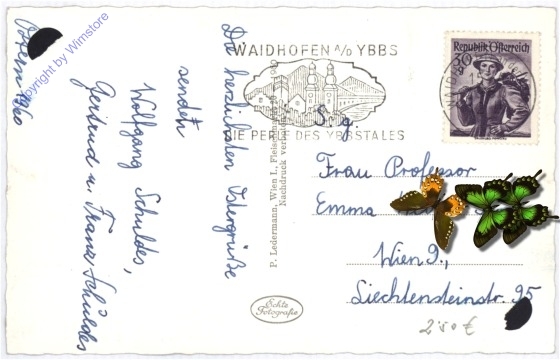 Ostern 1960
Copyright by Wimstore
Die herzlichsten Ostergrüße
senden
Wolfgang Schuldes,
Gertrud u. Franz Schuldes
WAIDHOFEN A/D YBBS
DIE PERLE DES YBBSTALES
Republik Österreich
30
WAIDH
P. Ledermann, Wien I., Fleischm
Nachdruck verboten
Echte
Fotografie
S. g.
Frau Professor
Emma
Wien 9.,
Liechtensteinstr. 95
2.50 €